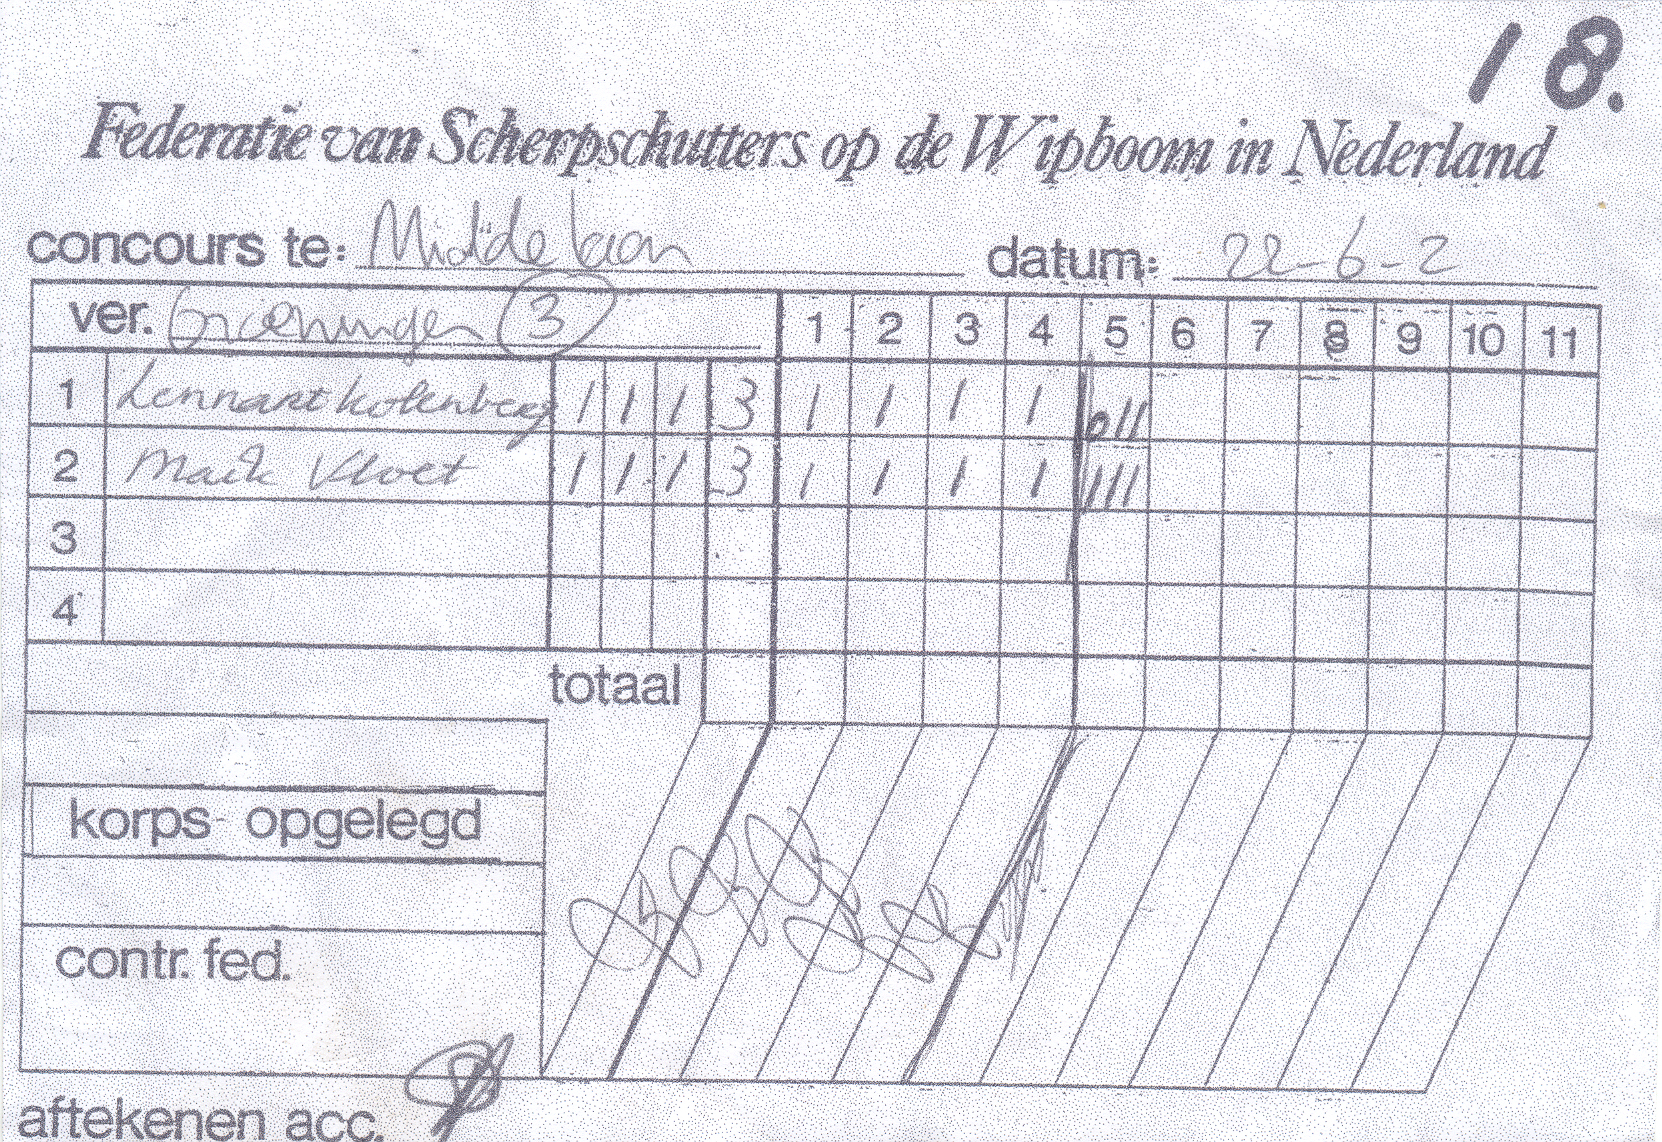 18.
Federatie van Scherpschutters op de Wipboom in Nederland
concours te: Middelaar datum: 22-6-2
ver. Groeningen 3 1 2 3 4 5 6 7 8 9 10 11
1 Lennart Kolenberg 1 1 1 3 1 1 1 1 011
2 Maik Vloet 1 1 1 3 1 1 1 1 111
3
4
totaal
korps- opgelegd
contr. fed.
aftekenen acc.